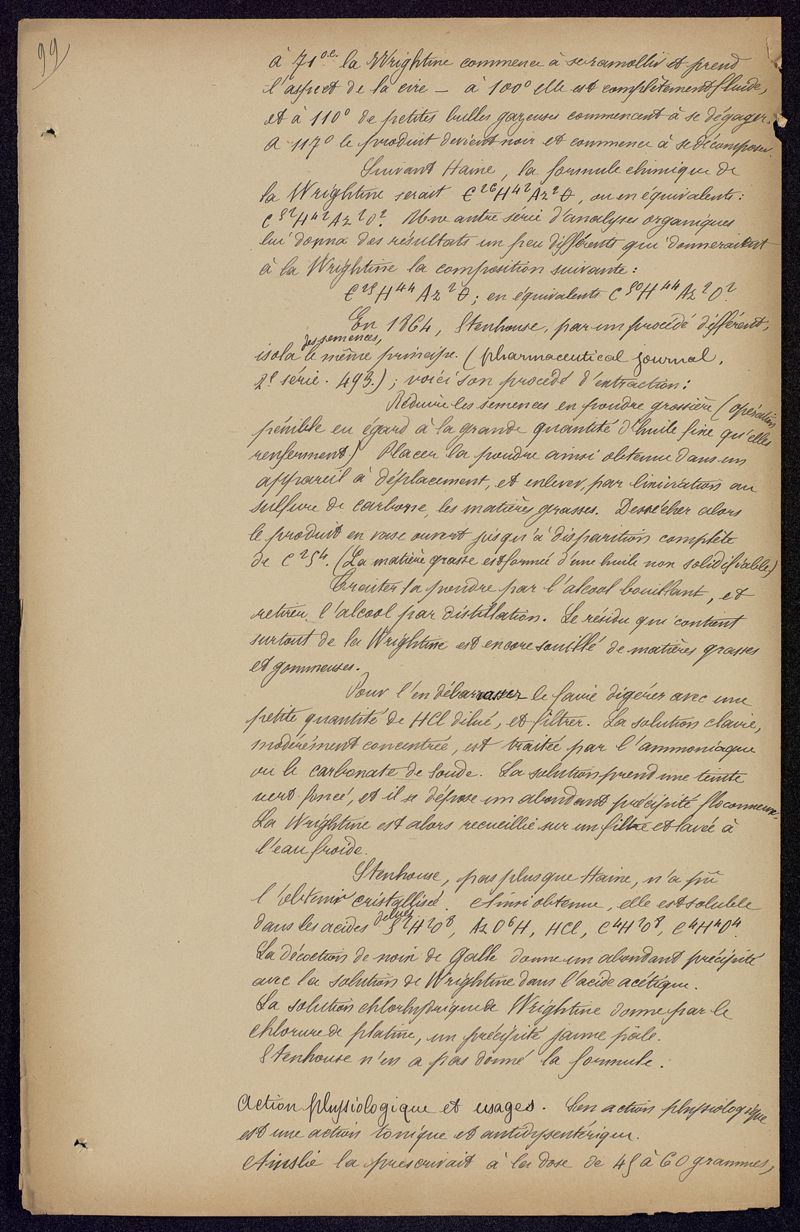 99
à 71° c. la Wrightine commence à se ramollir et prend
l'aspect de la cire – à 100° elle est complètement fluide,
et à 110° de petites bulles gazeuses commencent à se dégager.
A 117° le produit devient noir et commence à se décomposer
Suivant Haine, la formule chimique de
la Wrightine serait C²⁶H⁴²Az²O, ou en équivalents:
C⁵²H⁴²Az²O². Une autre série d'analyses organiques
lui donna des résultats un peu différents qui donneraient
à la Wrightine la composition suivante:
C²⁵H⁴⁴Az²O; en équivalents C⁵⁰H⁴⁴Az²O².
En 1864, Stenhouse, par un procédé différent,
isola des semences, le même principe. (pharmaceutical journal.
2e série. 493.); voici son procédé d'extraction:
Réduire les semences en poudre grossière (opération
pénible eu égard à la grande quantité d'huile fixe qu'elles
renferment) Placer la poudre ainsi obtenue dans un
appareil à déplacement, et enlever, par lixiviation au
sulfure de carbone, les matières grasses. Dessécher alors
le produit en vase ouvert jusqu'à disparition complète
de C²S⁴. (La matière grasse est formée d'une huile non solidifiable)
Traiter la poudre par l'alcool bouillant, et
retirer l'alcool par distillation. Le résidu qui contient
surtout de la Wrightine est encore souillé de matières grasses
et gommeuses.
Pour l'en débarrasser le faire digérer avec une
petite quantité de HCl dilué, et filtrer. La solution claire,
modérément concentrée, est traitée par l'ammoniaque
ou le carbonate de soude. La solution prend une teinte
vert foncé, et il se dépose un abondant précipité floconneux.
La Wrightine est alors recueillie sur un filtre et lavée à
l'eau froide.
Stenhouse, pas plus que Haine, n'a pu
l'obtenir cristallisée. Ainsi obtenue, elle est soluble
dans les acides dilués S²H²O⁸, AzO⁶H, HCl, C⁴H²O⁸, C⁴H⁴O⁴.
La décoction de noix de Galle donne un abondant précipité
avec la solution de Wrightine dans l'acide acétique.
La solution chlorhydrique de Wrightine donne par le
chlorure de platine, un précipité jaune pâle.
Stenhouse n'en a pas donné la formule.
Action physiologique et usages. Son action physiologique
est une action tonique et antidysentérique.
Ainslie la prescrivait à la dose de 45 à 60 grammes,